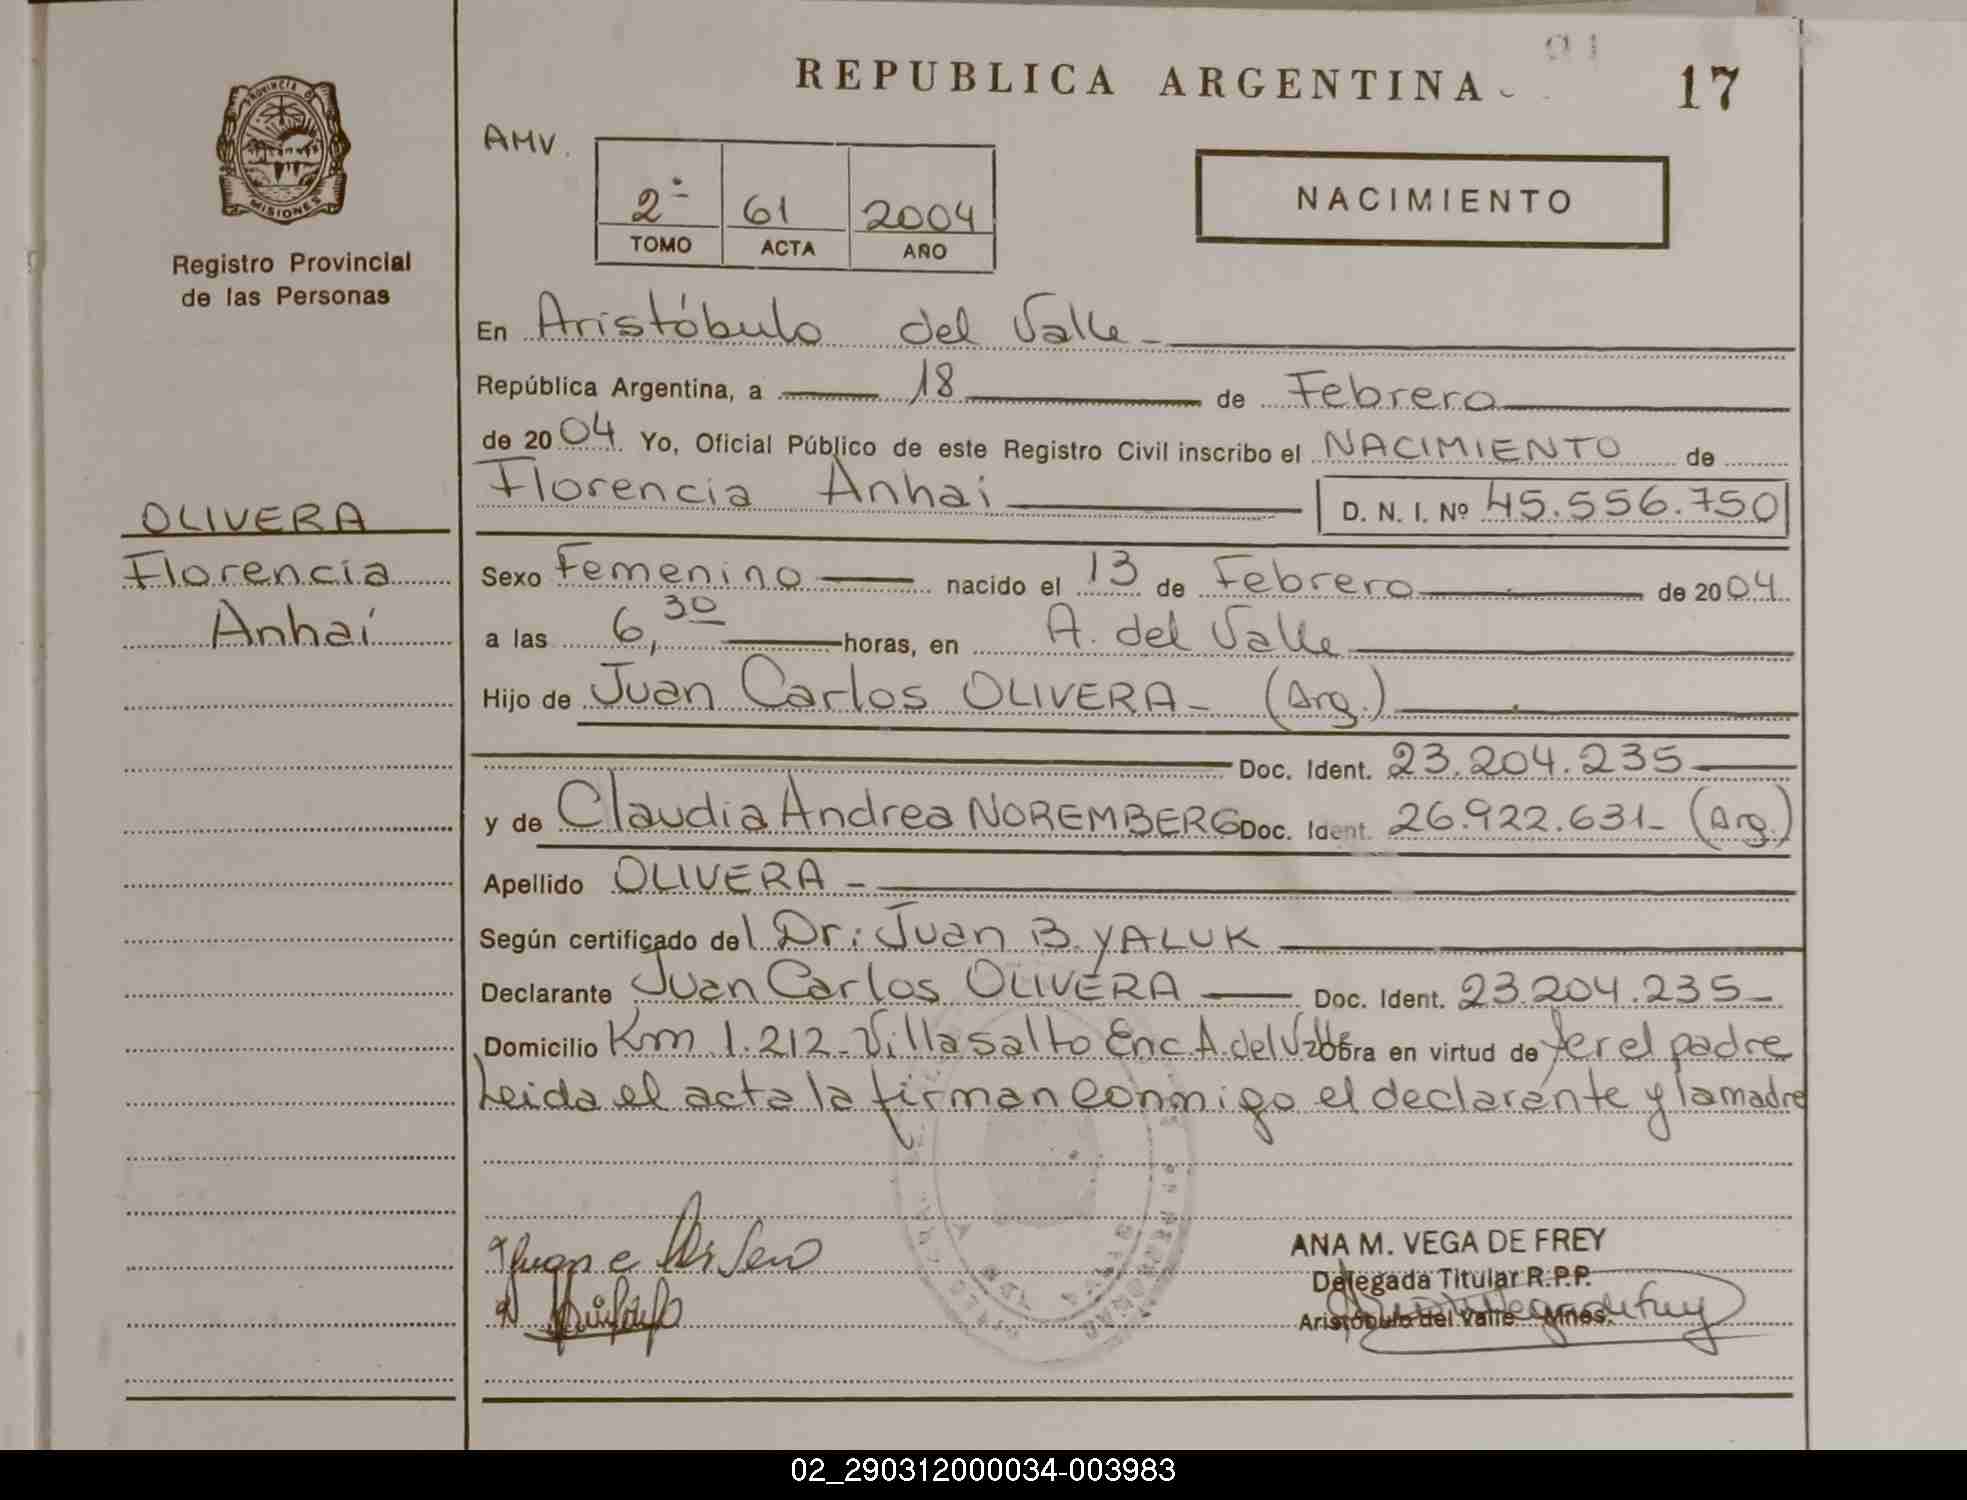 REPUBLICA ARGENTINA
17
PROVINCIA DE
MISIONES
Registro Provincial
de las Personas
AMV.
2º 61 2004
TOMO ACTA AÑO
NACIMIENTO
En Aristóbulo del Valle
República Argentina, a 18 de Febrero
de 2004 Yo, Oficial Público de este Registro Civil inscribo el NACIMIENTO de
Florencia Anhai D. N. I. Nº 45.556.750
OLIVERA
Florencia
Anhai
Sexo Femenino nacido el 13 de Febrero de 2004
a las 6,30 horas, en A. del Valle
Hijo de Juan Carlos OLIVERA - (Arg.)
Doc. Ident. 23.204.235
y de Claudia Andrea NOREMBERG Doc. Ident. 26.922.631- (Arg.)
Apellido OLIVERA -
Según certificado del Dr: Juan B. YALUK
Declarante Juan Carlos OLIVERA Doc. Ident. 23.204.235-
Domicilio Km 1.212- Villa Salto Enc. A. del Valle Obra en virtud de ser el padre
Leida el acta la firman conmigo el declarante y la madre
ANA M. VEGA DE FREY
Delegada Titular R.P.P.
Aristóbulo del Valle - Mnes.
02_290312000034-003983